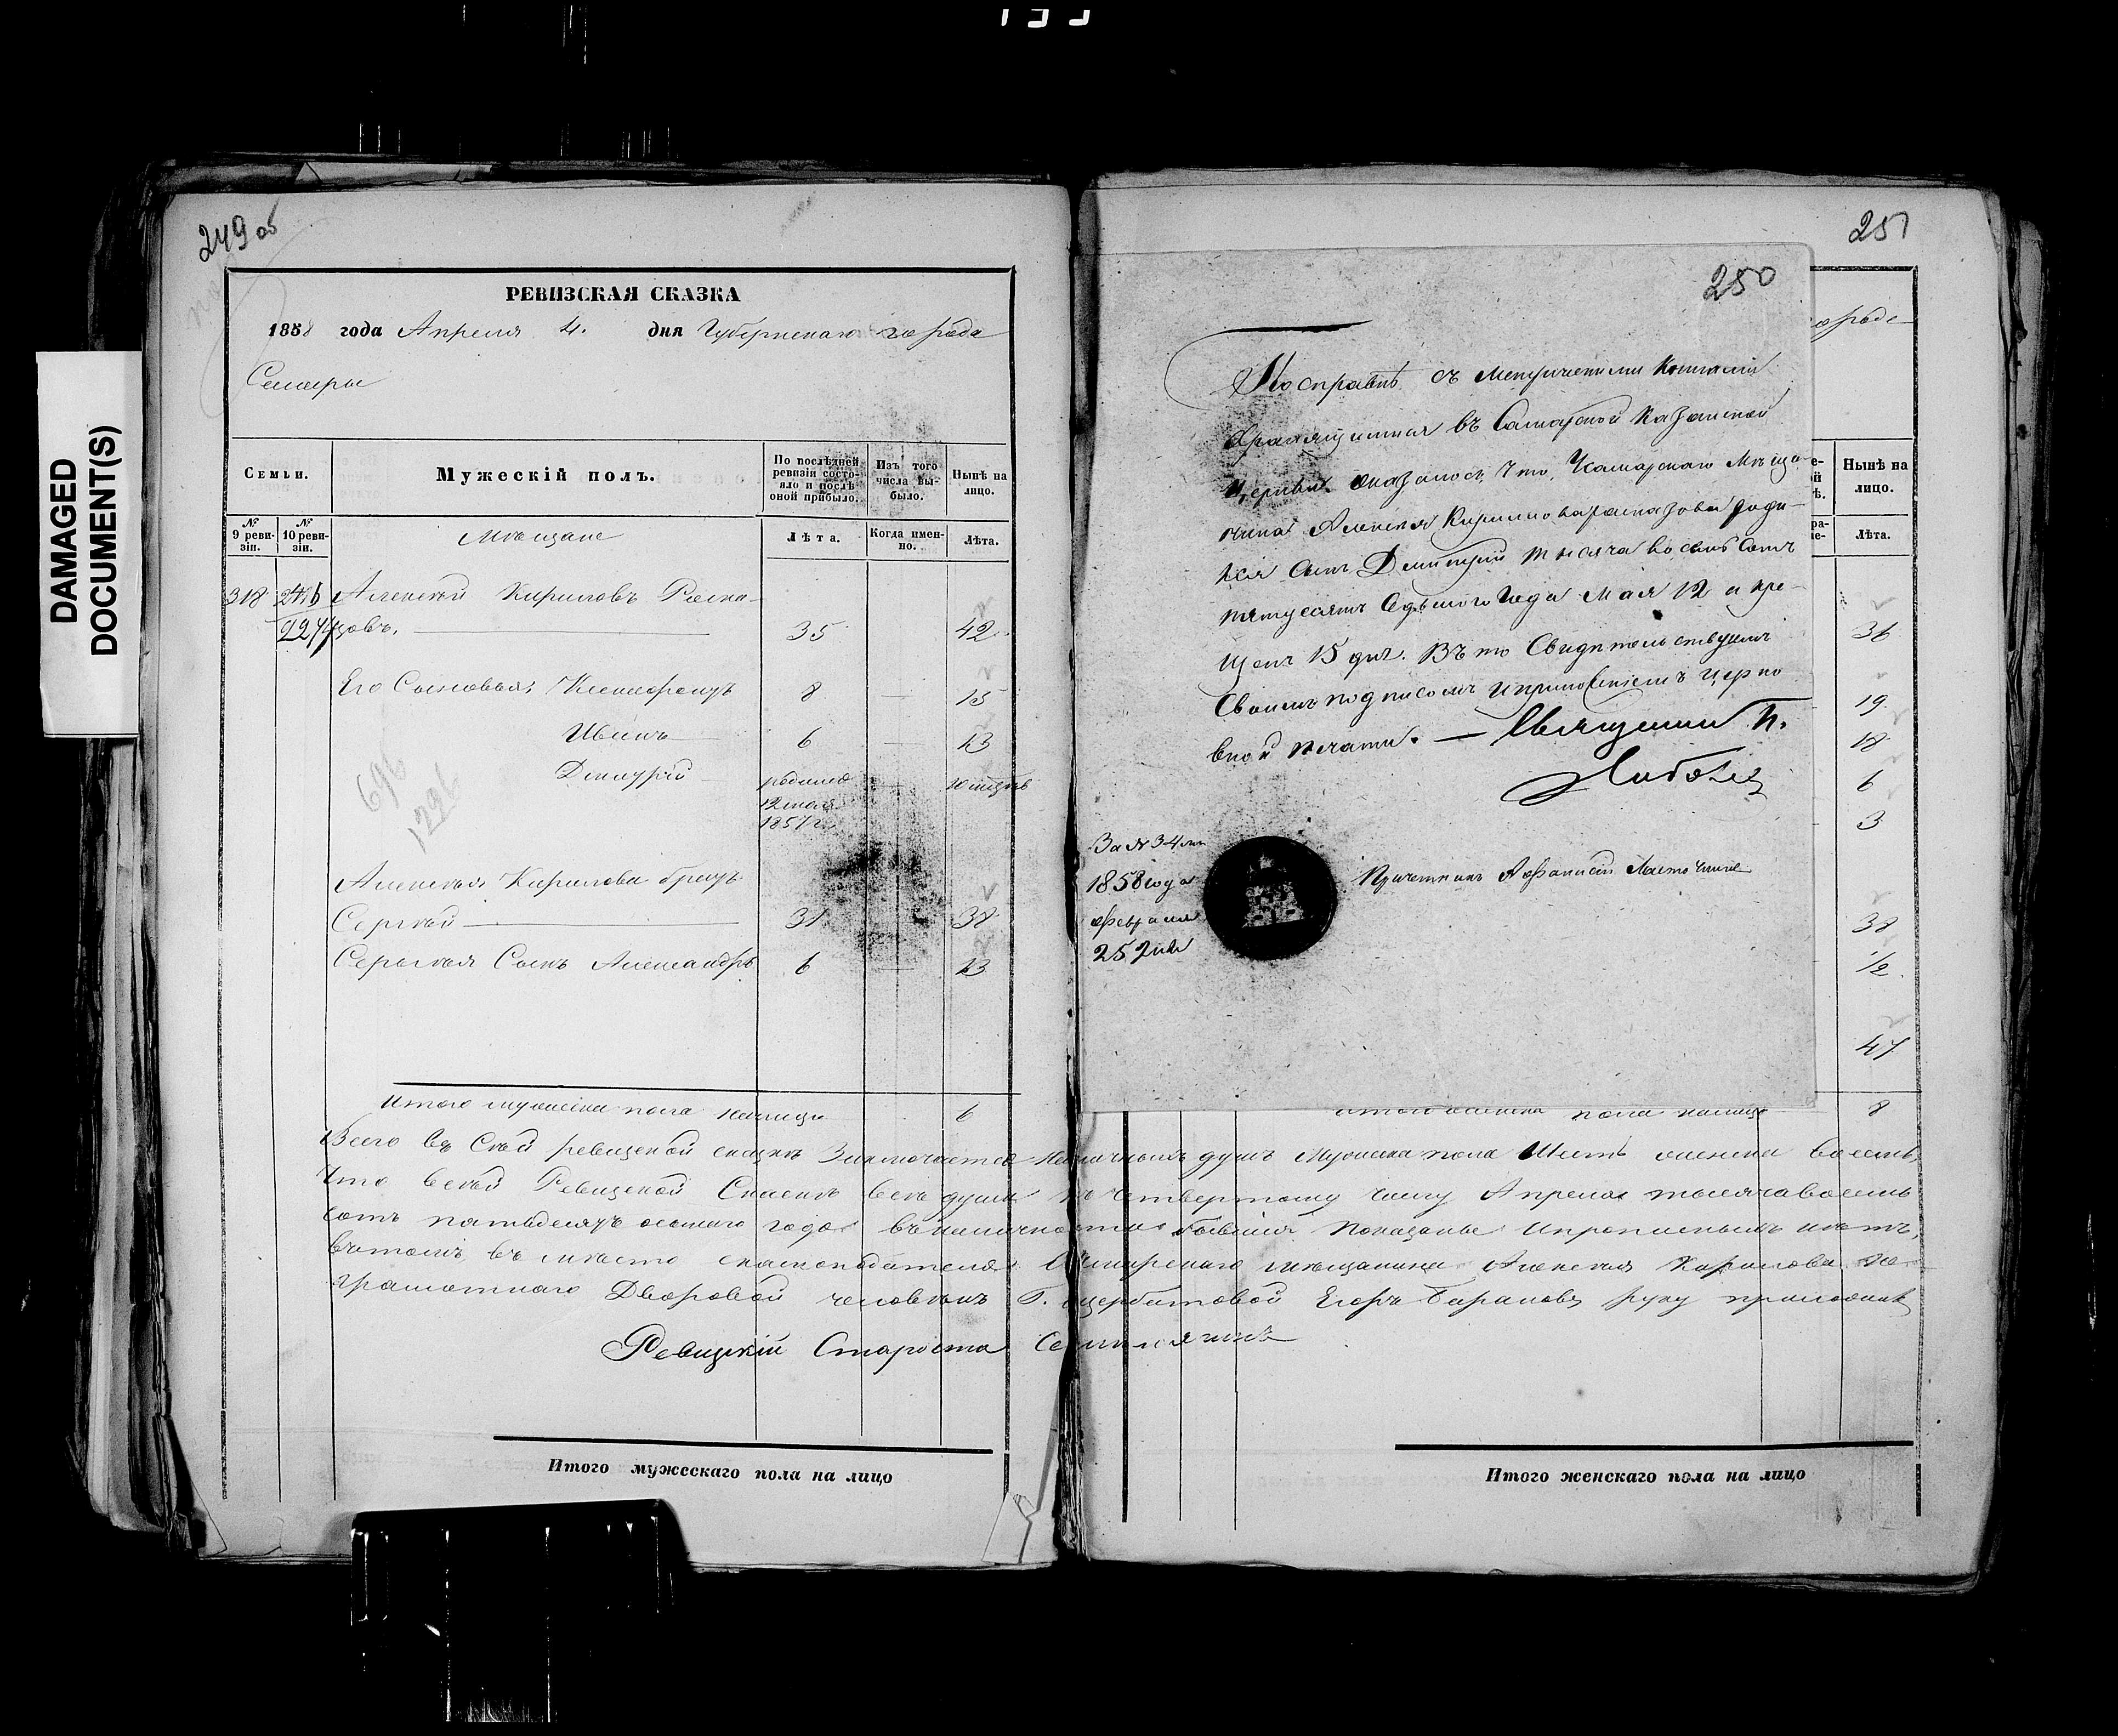 DAMAGED
DOCUMENT(S)
249 об
РЕВИЗСКАЯ СКАЗКА
1858 года Апреля 4. дня Губернскаго города
Самары
Семьи.
Мужескій полъ.
По послѣдней ревизіи состояло и послѣ оной прибыло.
Изъ того числа выбыло.
Нынѣ на лицо.
№ 9 ревизіи.
№ 10 ревизіи.
Мѣщане
Лѣта.
Когда именно.
Лѣта.
318 Алексѣй Кириловъ Раска-
зовъ. 35 42
Его Сыновья: Никифоръ 8 15
Иванъ 6 13
Димитрій родился 10 мѣсяцъ
12 мая
1857 г.
696
1296
Алексѣя Кирилова братъ
Сергѣй 31 38
Сергѣя Сынъ Александръ 6 13
Итого мужеска пола налицо 6
251
250
По справкѣ съ метрическими книгами
хранящимися въ Самарской Казанской
церкви оказалось, что, Самарскаго Мѣща-
нина Алексея Кирилова Расказова роди-
лся сынъ Димитрий тысяча восемь сотъ
пятдесятъ седьмого года Мая 12 а кре-
щенъ 15 дня. Въ то Свидѣтельствуемъ
Своимъ подписомъ и приложеніемъ церко
вной печати. — Священник П.
За № 34 мъ
1858 года
февраля
25 дня
Причетникъ Афанасій Ласточкинъ
городе
Нынѣ на лицо.
Лѣта.
36
19
18
6
3
38
1/2
47
Итого женска пола налицо 8
Всего въ Сей ревизской сказкѣ Заключается наличныхъ душъ Мужеска пола Шесть женска восемь,
Что въ сей Ревизской Сказкѣ всѣ души по четвертому числу Апреля тысяча восемь
сотъ пятьдесятъ осьмаго года въ наличности бывшія показаны и прописныхъ нѣтъ,
въ томъ въ мѣсто сказкоподателя Самарскаго мѣщанина Алексѣя Кирилова не-
грамотнаго Дворовой человѣкъ Г. Щербатовой Егоръ Барановъ руку приложилъ
Ревизкій Староста
Итого мужескаго пола на лицо
Итого женскаго пола на лицо